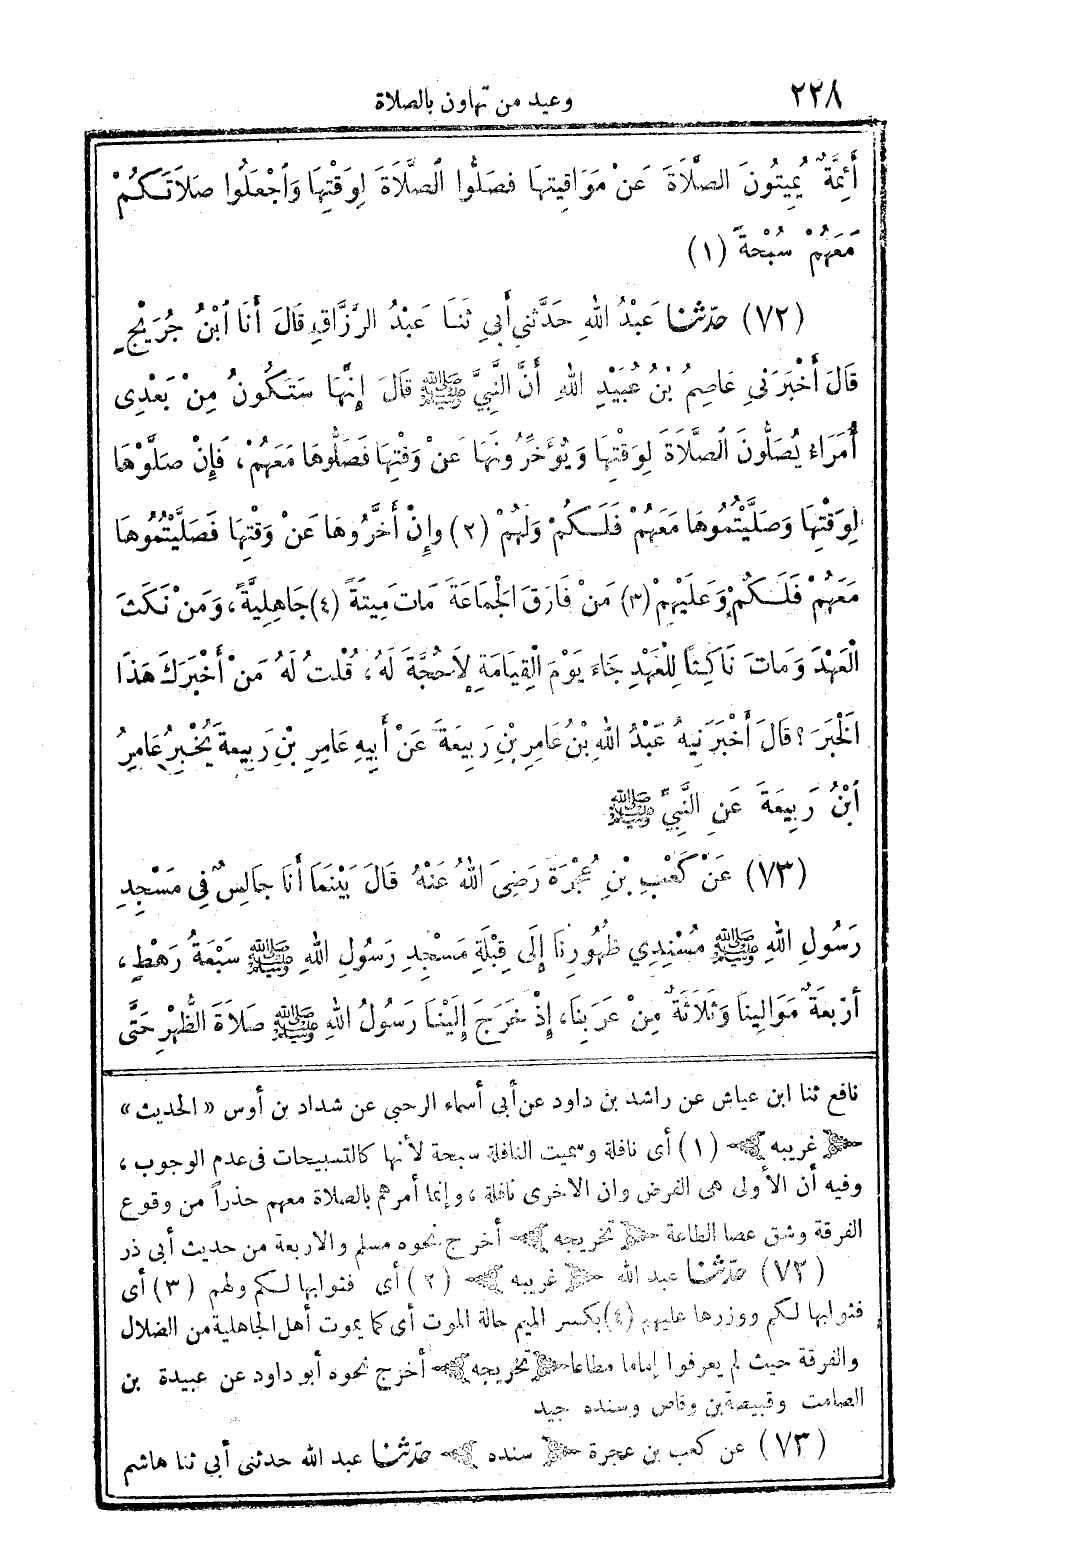 ٢٢٨ وعيد من تهاون بالصلاة
أَئِمَّةٌ يُمِيتُونَ الصَّلَاةَ عَنْ مَوَاقِيتِهَا فَصَلُّوا الصَّلَاةَ لِوَقْتِهَا وَاجْعَلُوا صَلَاتَكُمْ
مَعَهُمْ سُبْحَةً (١)
(٧٢) حدّثنا عَبْدُ اللهِ حَدَّثَنِي أَبِي ثَنَا عَبْدُ الرَّزَّاقِ قَالَ أَنَا ابْنُ جُرَيْجٍ
قَالَ أَخْبَرَنِي عَاصِمُ بْنُ عُبَيْدِ اللهِ أَنَّ النَّبِيَّ ﷺ قَالَ إِنَّهَا سَتَكُونُ مِنْ بَعْدِي
أُمَرَاءُ يُصَلُّونَ الصَّلَاةَ لِوَقْتِهَا وَيُؤَخِّرُونَهَا عَنْ وَقْتِهَا فَصَلُّوهَا مَعَهُمْ، فَإِنْ صَلَّوْهَا
لِوَقْتِهَا وَصَلَّيْتُمُوهَا مَعَهُمْ فَلَكُمْ وَلَهُمْ (٢) وإِنْ أَخَّرُوهَا عَنْ وَقْتِهَا فَصَلَّيْتُمُوهَا
مَعَهُمْ فَلَكُمْ وَعَلَيْهِمْ (٣) مَنْ فَارَقَ الْجَمَاعَةَ مَاتَ مِيتَةً (٤) جَاهِلِيَّةً، وَمَنْ نَكَثَ
الْعَهْدَ وَمَاتَ نَاكِثًا لِلْعَهْدِ جَاءَ يَوْمَ الْقِيَامَةِ لَاحُجَّةَ لَهُ، قُلْتُ لَهُ مَنْ أَخْبَرَكَ هَذَا
الْخَبَرَ؟ قَالَ أَخْبَرَنِيهِ عَبْدُ اللهِ بْنُ عَامِرِ بْنِ رَبِيعَةَ عَنْ أَبِيهِ عَامِرِ بْنِ رَبِيعَةَ يُخْبِرُ عَامِرُ
ابْنُ رَبِيعَةَ عَنِ النَّبِيِّ ﷺ
(٧٣) عَنْ كَعْبِ بْنِ عُجْرَةَ رَضِيَ اللهُ عَنْهُ قَالَ بَيْنَمَا أَنَا جَالِسٌ فِي مَسْجِدِ
رَسُولِ اللهِ ﷺ مُسْنِدِي ظُهُورِنَا إِلَى قِبْلَةِ مَسْجِدِ رَسُولِ اللهِ ﷺ سَبْعَةُ رَهْطٍ،
أَرْبَعَةٌ مَوَالِينَا وَثَلَاثَةٌ مِنْ عَرَبِنَا، إِذْ خَرَجَ إِلَيْنَا رَسُولُ اللهِ ﷺ صَلَاةَ الظُّهْرِ حَتَّى
نافع ثنا ابن عياش عن راشد بن داود عن أبي أسماء الرحبي عن شداد بن أوس «الحديث»
﴿غريبه﴾ (١) أى نافلة وسميت النافلة سبحة لأنها كالتسبيحات فى عدم الوجوب،
وفيه أن الأولى هى الفرض وان الاخرى نافلة، وإنما أمرهم بالصلاة معهم حذراً من وقوع
الفرقة وشق عصا الطاعة ﴿تخريجه﴾ أخرج نحوه مسلم والاربعة من حديث أبى ذر
(٧٢) حدّثنا عبد الله ﴿غريبه﴾ (٢) أى فثوابها لكم ولهم (٣) أى
فثوابها لكم ووزرها عليهم (٤) بكسر الميم حالة الموت أى كما يموت أهل الجاهلية من الضلال
والفرقة حيث لم يعرفوا إماما مطاعا ﴿تخريجه﴾ أخرج نحوه أبو داود عن عبيدة بن
الصامت وقبيصة بن وقاص وسنده جيد
(٧٣) عن كعب بن عجرة ﴿سنده﴾ حدّثنا عبد الله حدثنى أبي ثنا هاشم